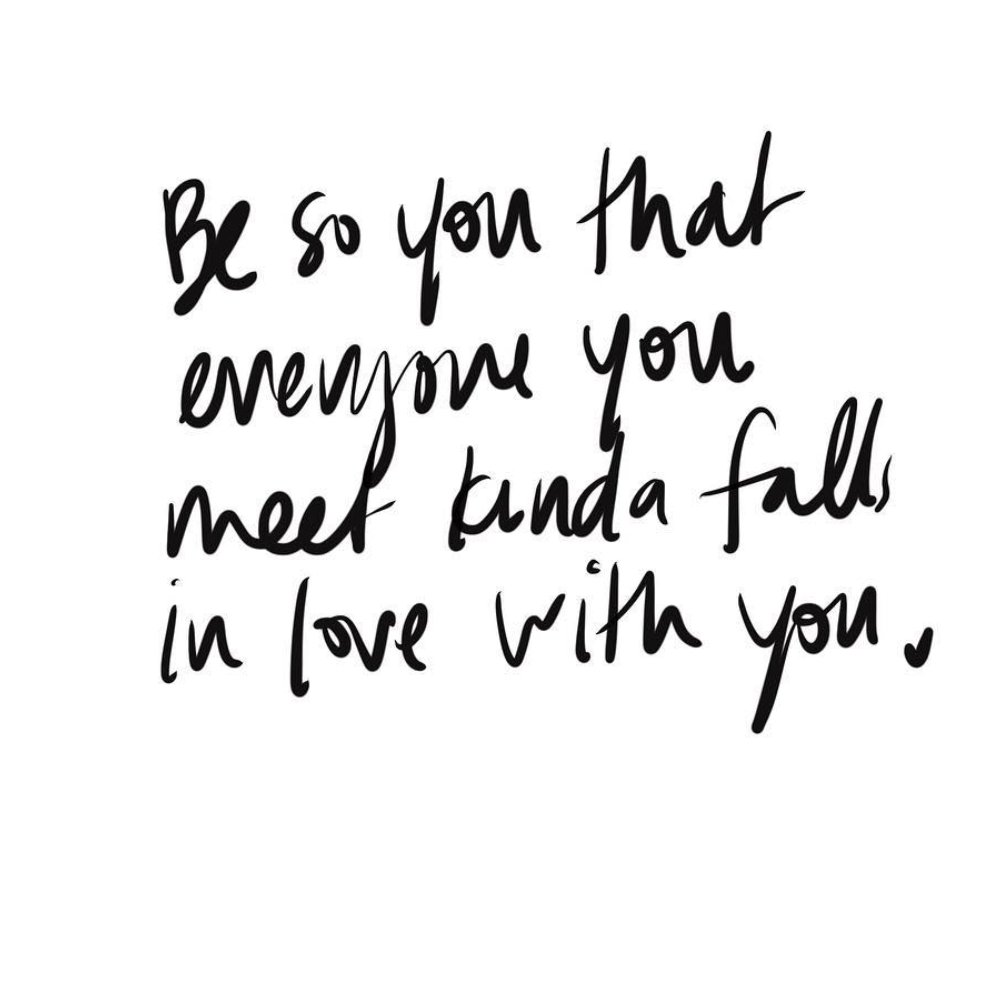 Be so you that
everyone you
meet kinda falls
in love with you.